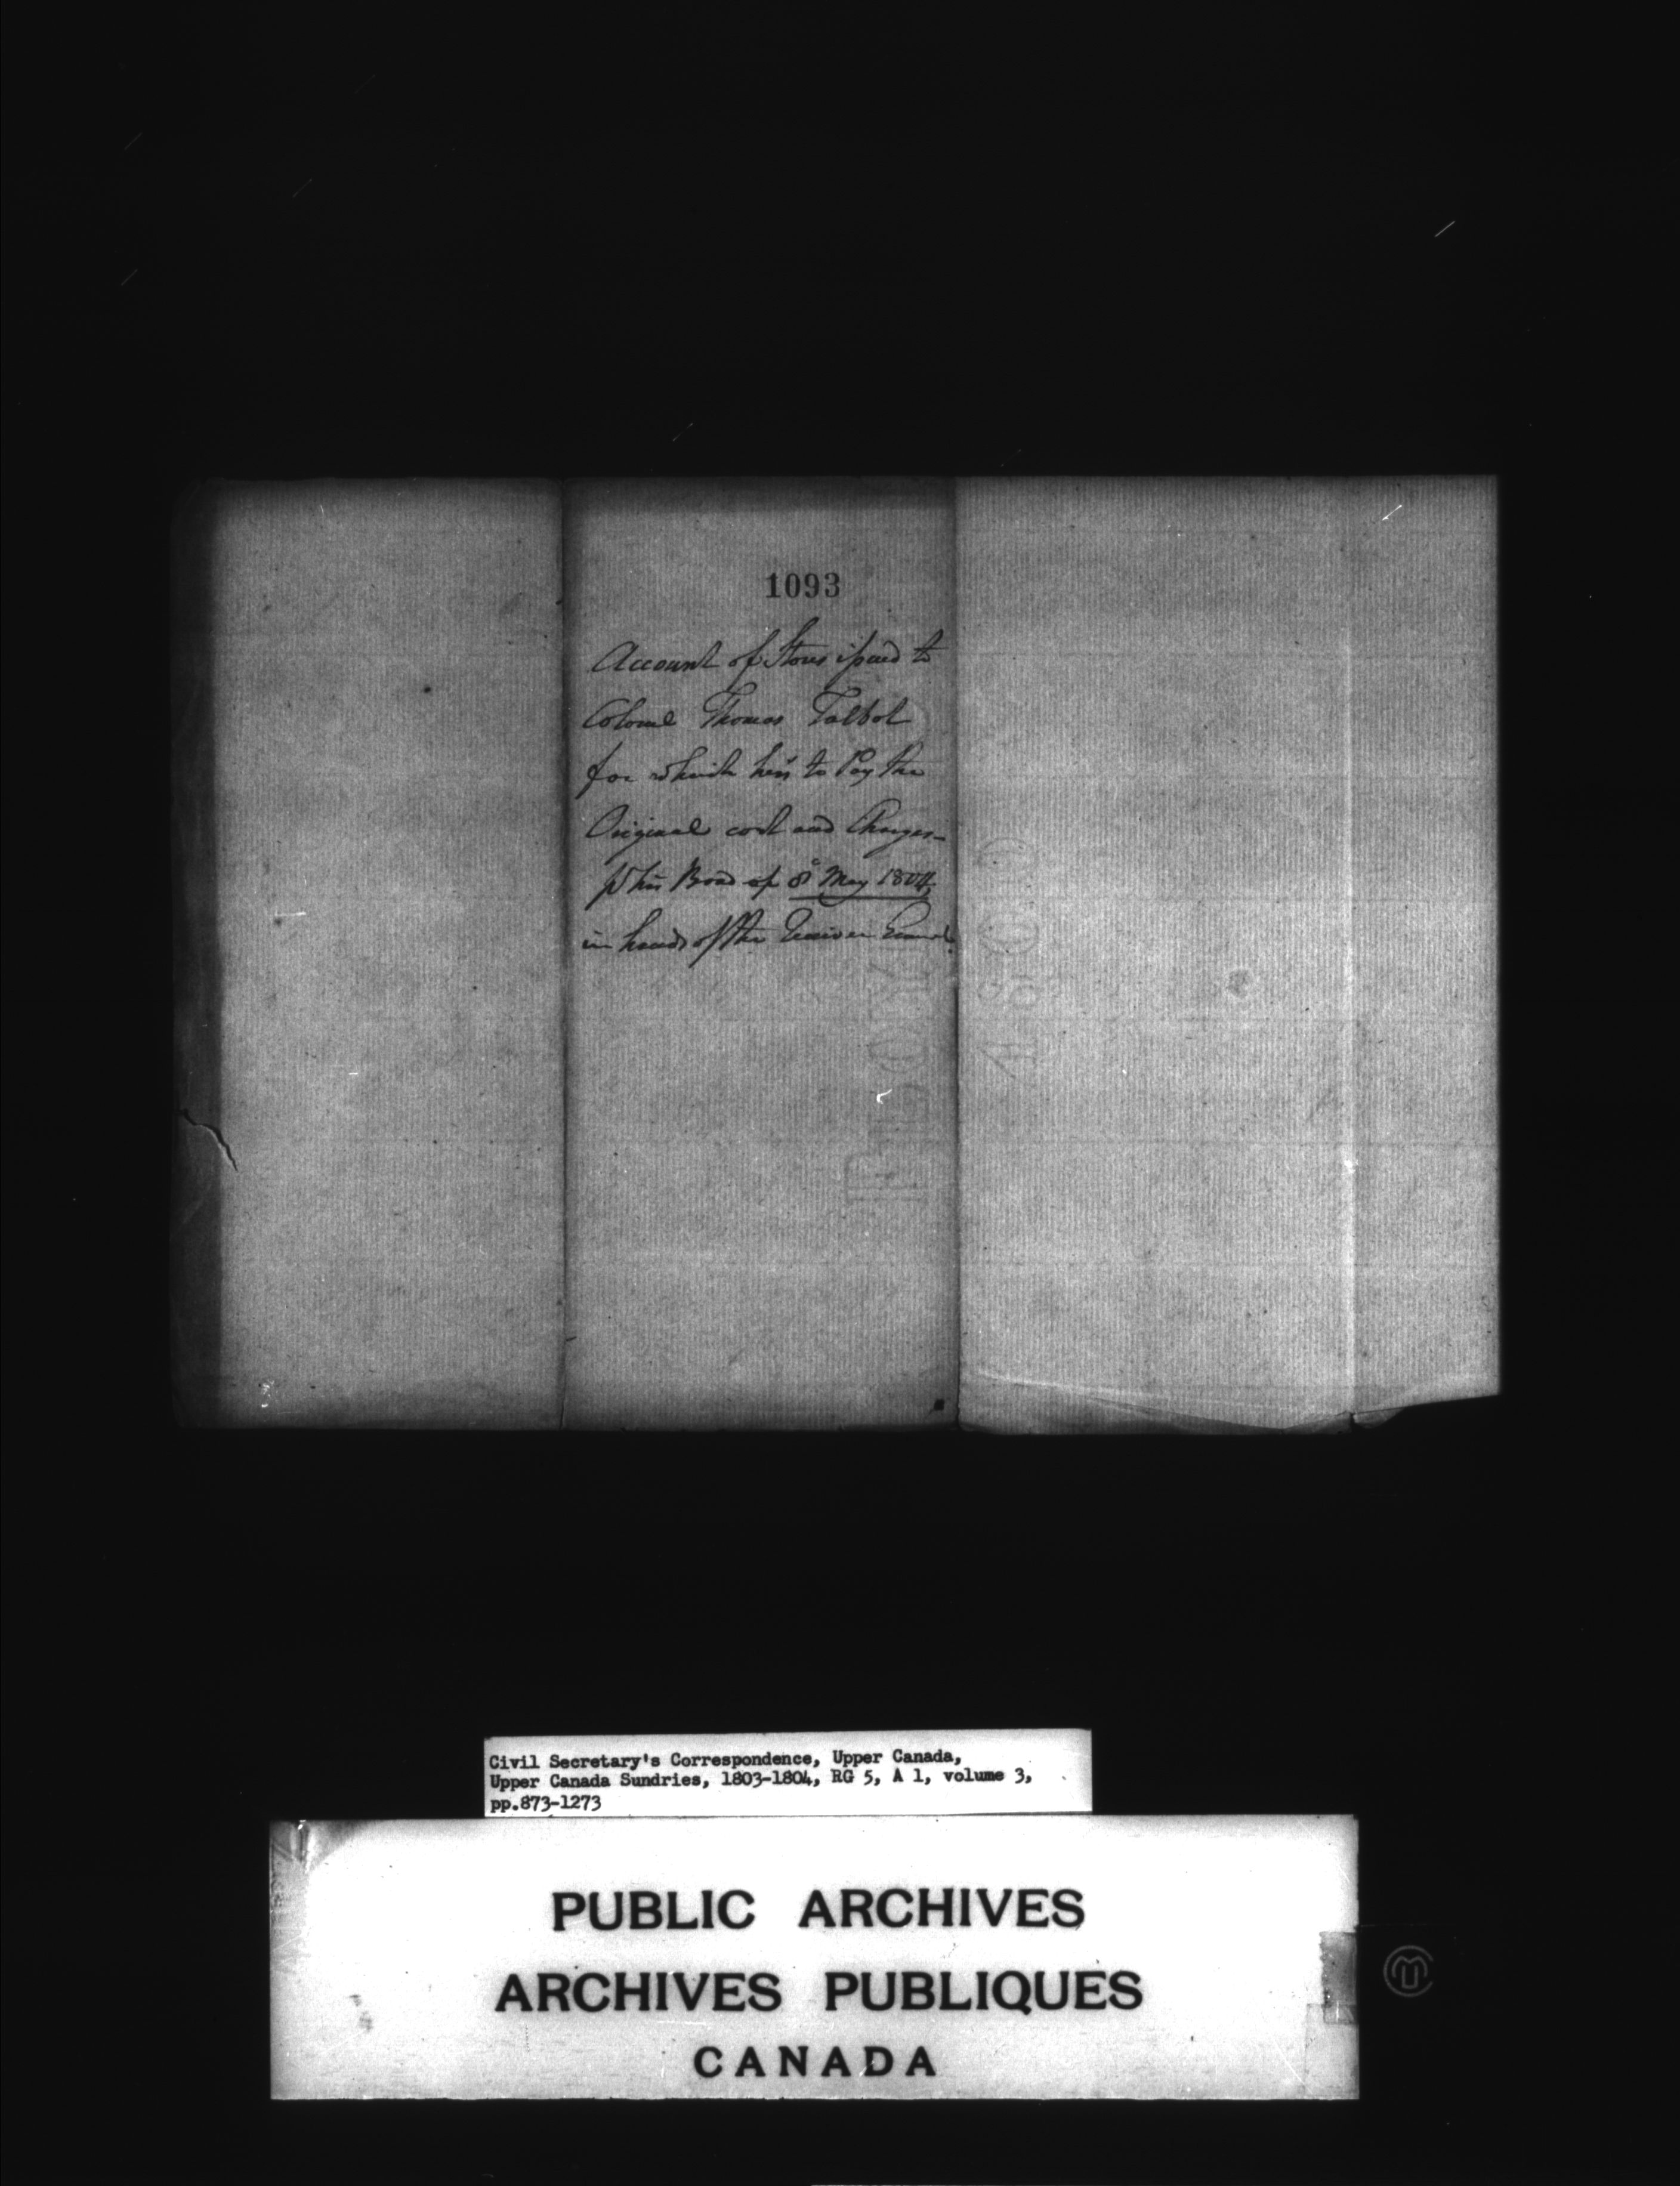 1093
Account of Stores issued to
Colonel Thomas Talbot
for which he is to Pay the
Original cost and Charges
p his Bond of 8 May 1804
in hands of the Receiver General
Civil Secretary's Correspondence, Upper Canada,
Upper Canada Sundries, 1803-1804, RG 5, A 1, volume 3,
pp.873-1273
PUBLIC ARCHIVES
ARCHIVES PUBLIQUES
CANADA